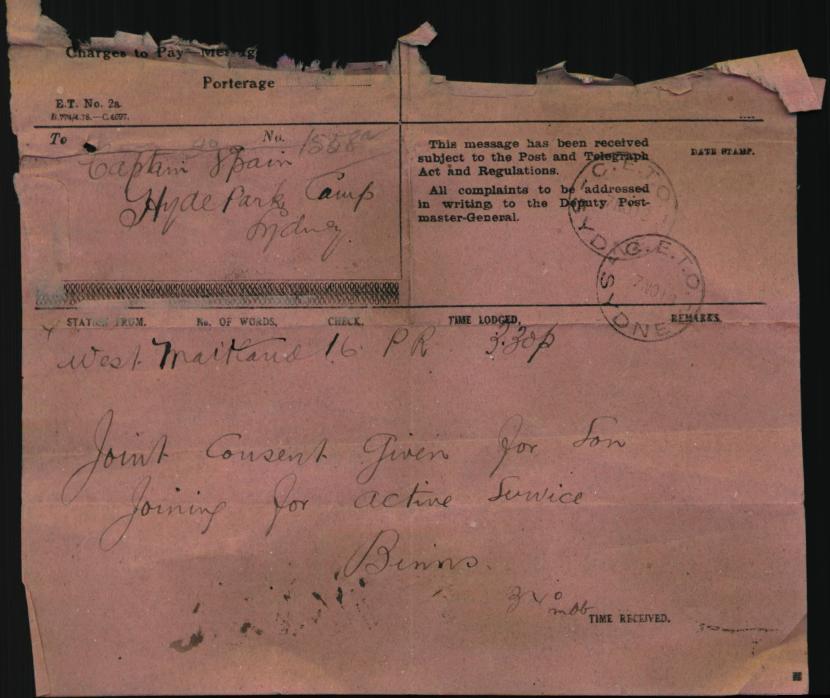 Charges to Pay Messag
Porterage
E.T. No. 2a.
To No. 1558a
Captain Spain
Hyde Park Camp
Sydney
This message has been received
subject to the Post and Telegraph
Act and Regulations.
All complaints to be addressed
in writing, to the Deputy Post-
master-General.
DATE STAMP.
C.E.T.O.
SYD
C.E.T.O.
SYDNE
STATION FROM. No. OF WORDS. CHECK. TIME LODGED. REMARKS.
West Maitland 16 PR 3.30p
Joint Consent Given for Son
Joining for active Service
Binns.
TIME RECEIVED.